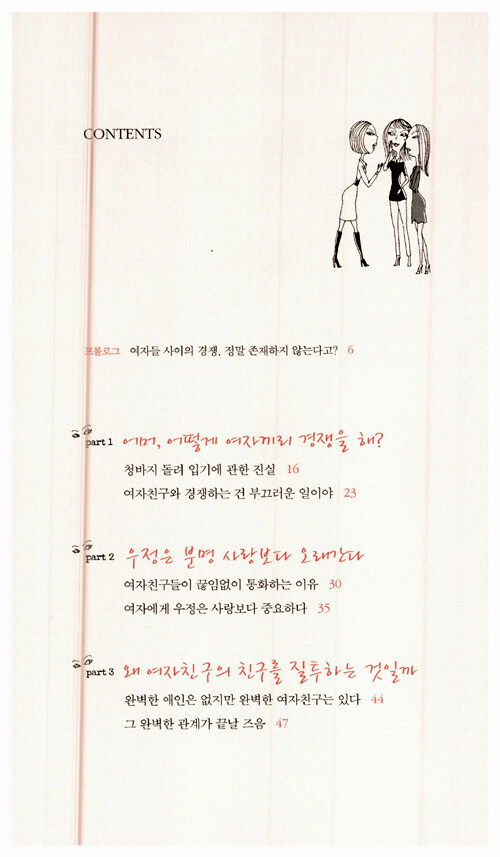 CONTENTS
프롤로그 여자들 사이의 경쟁, 정말 존재하지 않는다고? 6
part 1 에머, 어떻게 여자끼리 경쟁을 해?
청바지 돌려 입기에 관한 진실 16
여자친구와 경쟁하는 건 부끄러운 일이야 23
part 2 우정은 분명 사랑보다 오래간다
여자친구들이 끊임없이 통화하는 이유 30
여자에게 우정은 사랑보다 중요하다 35
part 3 왜 여자친구의 친구를 질투하는 것일까
완벽한 애인은 없지만 완벽한 여자친구는 있다 44
그 완벽한 관계가 끝날 즈음 47